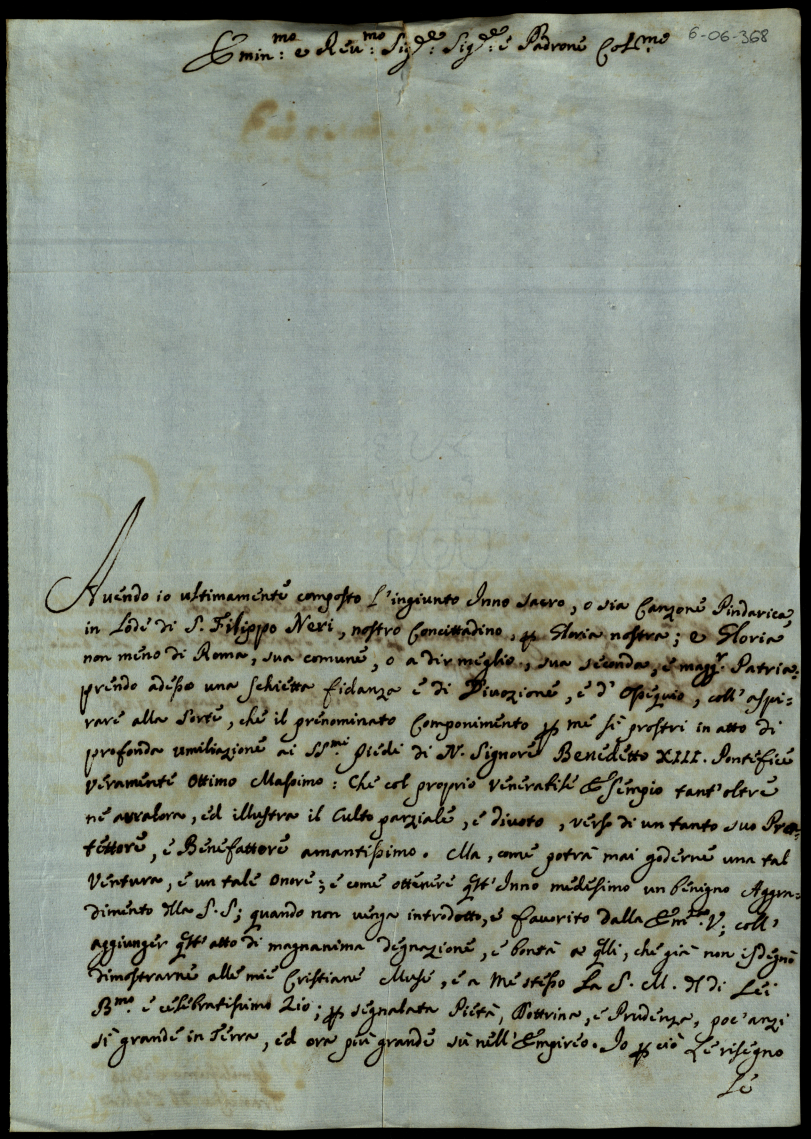 Emin:mo e Reu:mo Sig.re Sig.re e Padrone Col.mo
6-06-368
Auendo io ultimamente composto l'ingiunto Inno sacro, o sia Canzone Pindarica,
in Lode di S. Filippo Neri, nostro Concittadino, e Gloria nostra; e Gloria
non meno di Roma, sua comune, o a dir meglio, sua seconda, e magg.r Patria:
prendo adesso una schietta fidanza e di Divozione, e d'ossequio, coll'aspi-
rare alla sorte, che il prenominato Componimento p me si prostri in atto di
profonda umiliazione ai SS.mi Piedi di N. Signore Benedetto XIII. Pontefice
veramente Ottimo Massimo: Che col proprio venerabile Esempio tant'oltre
ne avvalora, ed illustra il Culto parziale, e divoto, verso di un tanto suo Pro-
tettore, e Benefattore amantissimo. Ma, come potrà mai goderne una tal
Ventura, e un tale onore; e come ottenere qst'Inno medesimo un benigno Aggra-
dimento dlla S. S; quando non venga introdotto, e favorito dalla Em.a V; coll'
aggiunger qst'atto di magnanima degnazione, e bontà a qlli, che già non isdegnò
dimostrarne alle mie Cristiane Muse, e a me stesso la S. M. dl di Lei
B.mo e celebratissimo Zio; p segnalata Pietà, Dottrina, e Prudenza, poc'anzi
sì grande in Terra, ed ora più grande sù nell'Empireo. Io p ciò Le risegno
Le